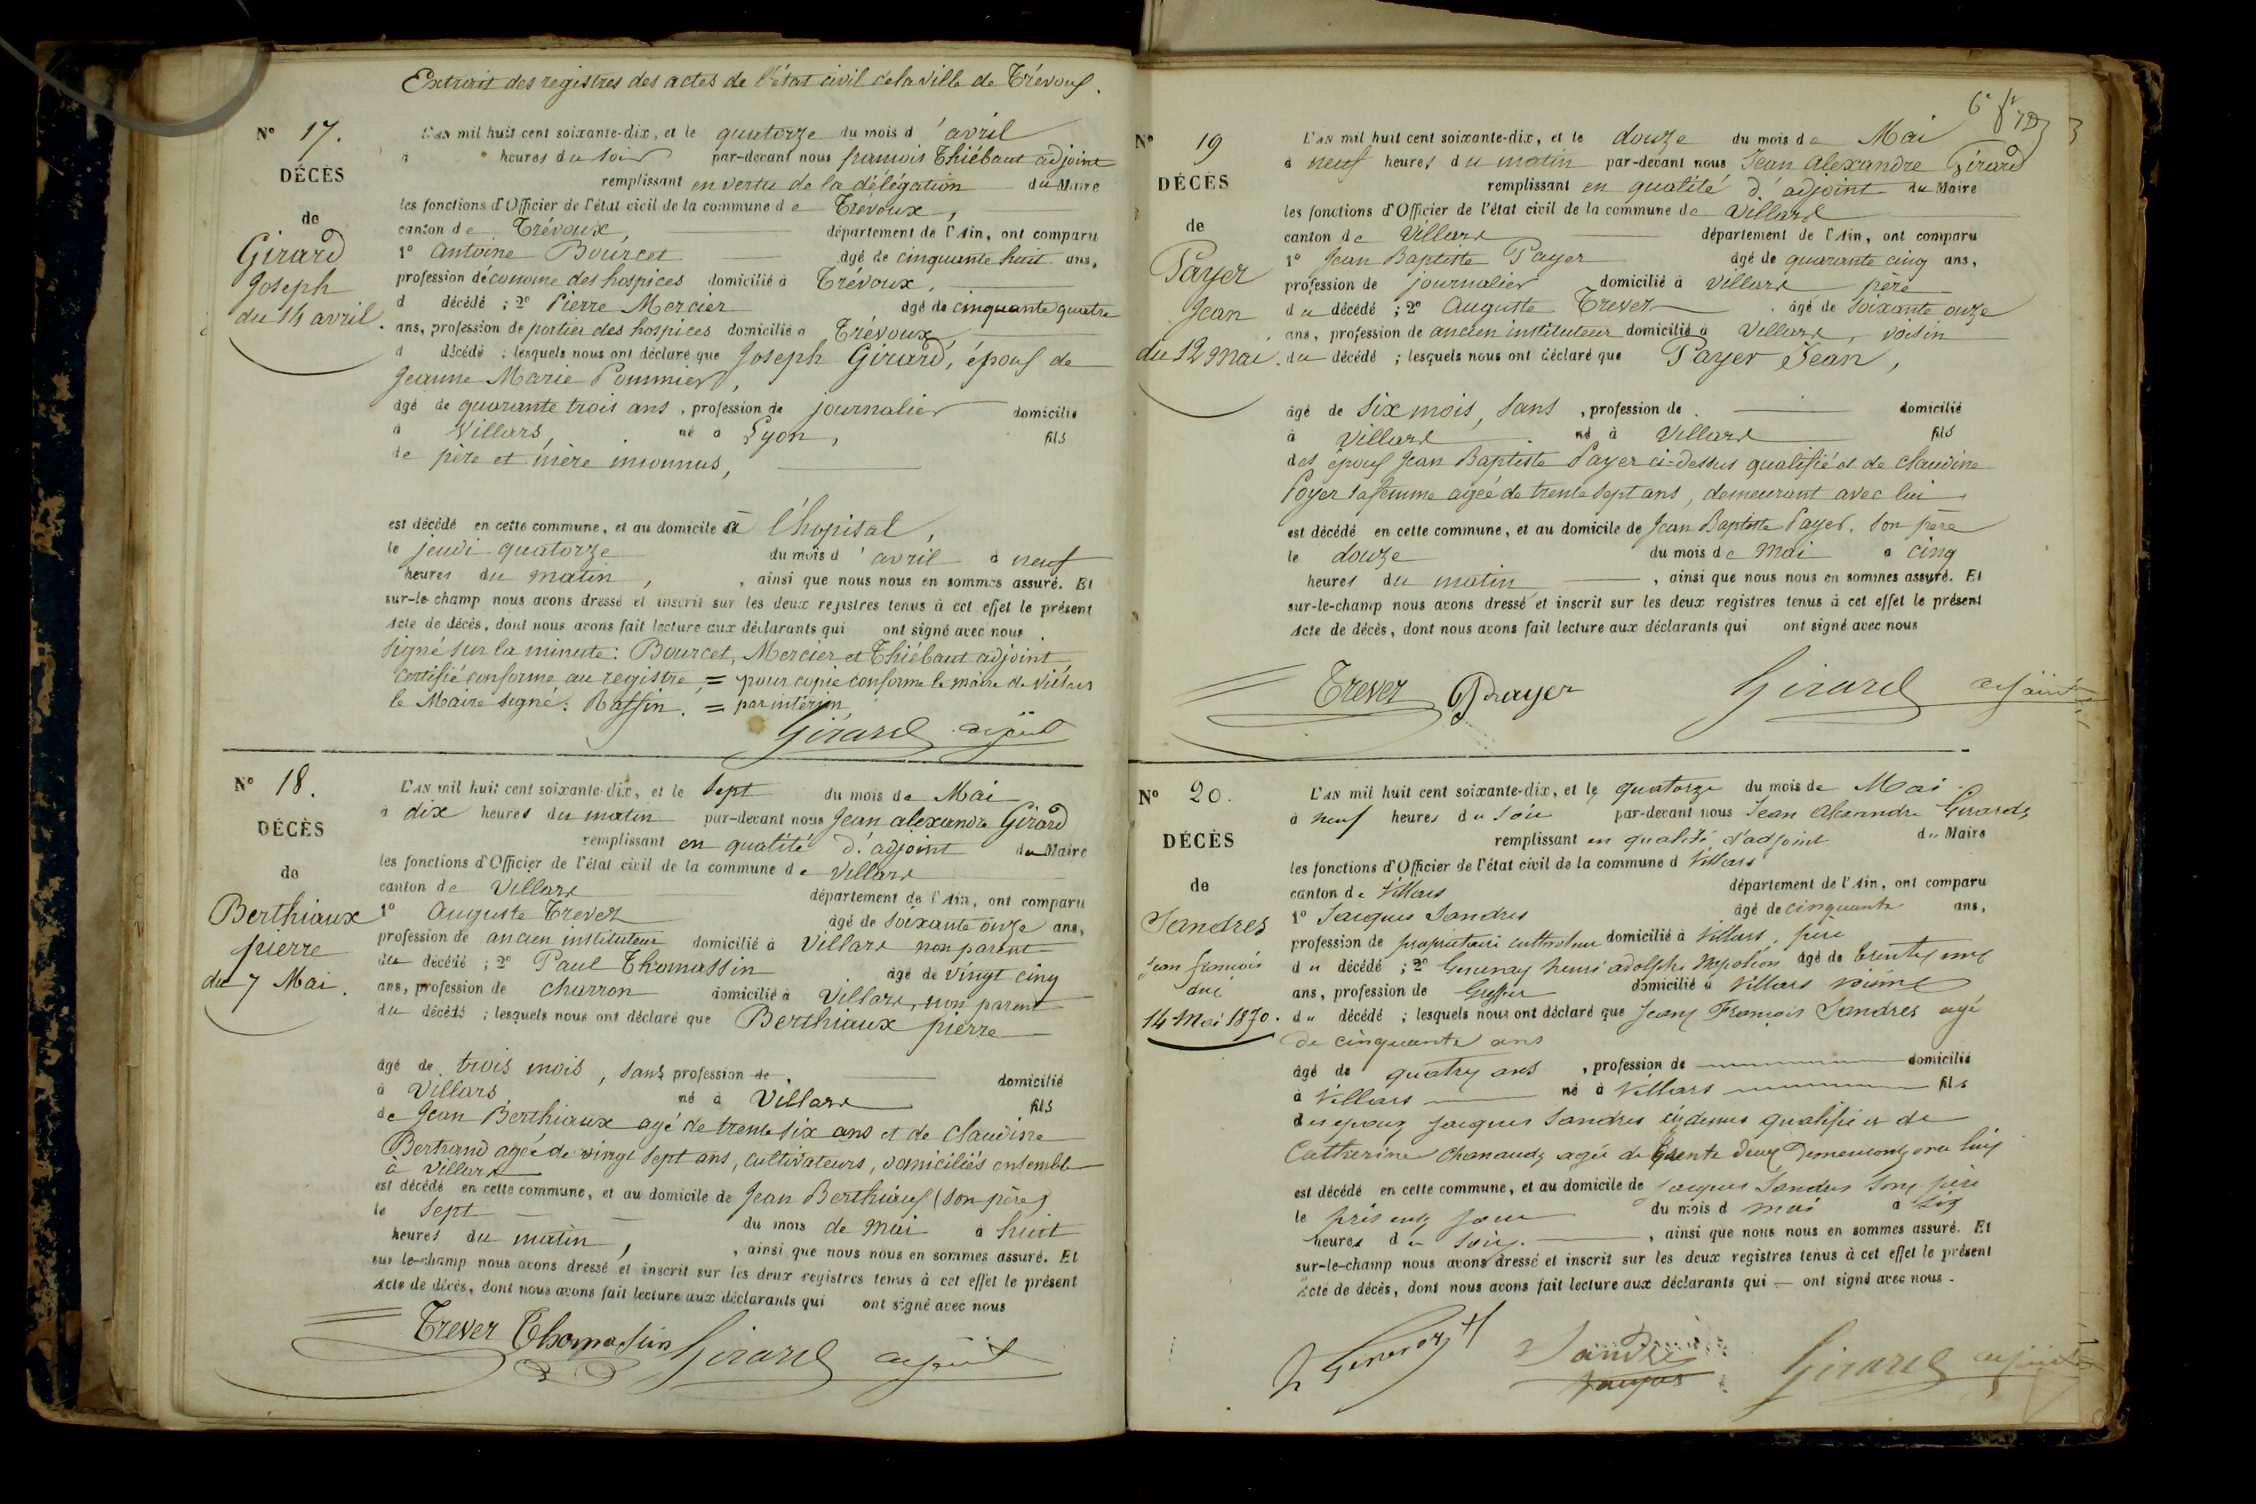 Extrait des registres des actes de l'état civil de la ville de Trévoux.
N° 17.
DÉCÈS
de
Girard
Joseph
du 14 avril.
L'AN mil huit cent soixante-dix, et le quatorze du mois d'avril
à heures du soir par-devant nous françois Thiébaut adjoint
remplissant en vertu de la délégation du Maire
les fonctions d'Officier de l'état civil de la commune de Trévoux,
canton de Trévoux, département de l'Ain, ont comparu
1° Antoine Bourcet âgé de cinquante huit ans,
profession d'économe des hospices domicilié à Trévoux,
d décédé ; 2° Pierre Mercier âgé de cinquante quatre
ans, profession de portier des hospices domicilié à Trévoux,
d décédé ; lesquels nous ont déclaré que Joseph Girard, époux de
Jeanne Marie Pommier,
âgé de quarante trois ans, profession de journalier domicilié
à Villars, né à Lyon, fils
de père et mère inconnus,
est décédé en cette commune, et au domicile à l'hopital,
le jeudi quatorze du mois d'avril à neuf
heures du matin, , ainsi que nous nous en sommes assuré. Et
sur-le-champ nous avons dressé et inscrit sur les deux registres tenus à cet effet le présent
Acte de décès, dont nous avons fait lecture aux déclarants qui ont signé avec nous.
signé sur la minute : Bourcet, Mercier et Thiébaut adjoint
certifié conforme au registre, = pour copie conforme le maire de Villars
le Maire signé : Raffin. = par intérim,
Girard adjoint
N° 18.
DÉCÈS
de
Berthiaux
pierre
du 7 Mai.
L'AN mil huit cent soixante-dix, et le sept du mois de Mai
à dix heures du matin par-devant nous Jean alexandre Girard
remplissant en qualité d'adjoint du Maire
les fonctions d'Officier de l'état civil de la commune de Villars
canton de Villars département de l'Ain, ont comparu
1° Auguste Trever âgé de soixante onze ans,
profession de ancien instituteur domicilié à Villars non parent
du décédé ; 2° Paul Thomassin âgé de vingt cinq
ans, profession de charron domicilié à Villars, non parent
du décédé ; lesquels nous ont déclaré que Berthiaux pierre
âgé de trois mois, sans profession de domicilié
à Villars né à Villars fils
de Jean Berthiaux agé de trente six ans et de Claudine
Bertrand agée de vingt sept ans, cultivateurs, domiciliés ensemble
à Villars
est décédé en cette commune, et au domicile de Jean Berthiaux (son père)
le sept du mois de mai à huit
heures du matin, , ainsi que nous nous en sommes assuré. Et
sur-le-champ nous avons dressé et inscrit sur les deux registres tenus à cet effet le présent
Acte de décès, dont nous avons fait lecture aux déclarants qui ont signé avec nous
Trever Thomassin Girard adjoint
6e
N° 19
DÉCÈS
de
Payer
Jean
du 12 mai.
L'AN mil huit cent soixante-dix, et le douze du mois de Mai
à neuf heures du matin par-devant nous Jean alexandre Girard
remplissant en qualité d'adjoint du Maire
les fonctions d'Officier de l'état civil de la commune de Villars
canton de Villars département de l'Ain, ont comparu
1° Jean Baptiste Payer âgé de quarante cinq ans,
profession de journalier domicilié à Villars père
du décédé ; 2° Auguste Trever âgé de soixante onze
ans, profession de ancien instituteur domicilié à Villars, voisin
du décédé ; lesquels nous ont déclaré que Payer Jean,
âgé de six mois, sans , profession de domicilié
à Villars né à Villars fils
des époux Jean Baptiste Payer ci-dessus qualifié et de Claudine
Poyer sa femme agée de trente sept ans, demeurant avec lui,
est décédé en cette commune, et au domicile de Jean Baptiste Payer, son père
le douze du mois de mai à cinq
heures du matin , ainsi que nous nous en sommes assuré. Et
sur-le-champ nous avons dressé et inscrit sur les deux registres tenus à cet effet le présent
Acte de décès, dont nous avons fait lecture aux déclarants qui ont signé avec nous
Trever Payer Girard adjoint
N° 20.
DÉCÈS
de
Sandres
Jean françois
14 Mai 1870.
L'AN mil huit cent soixante-dix, et le quatorze du mois de Mai
à neuf heures du soir par-devant nous Jean Alexandre Girard
remplissant en qualité d'adjoint du Maire
les fonctions d'Officier de l'état civil de la commune d Villars
canton de Villars département de l'Ain, ont comparu
1° Jacques Sandres âgé de cinquante ans,
profession de propriétaire cultivateur domicilié à Villars, père
du décédé ; 2° henri adolphe Napoléon âgé de trente
ans, profession de Greffier domicilié à Villars voisin
du décédé ; lesquels nous ont déclaré que Jean François Sandres agé
de cinquante ans
âgé de quatre ans , profession de domicilié
à Villars né à Villars fils
des époux Jacques Sandres ci dessus qualifié et de
Catherine Chanaud agée de trente deux demeurant avec lui
est décédé en cette commune, et au domicile de Jacques Sandres son père
le présent jour du mois d mai à six
heures du soir. , ainsi que nous nous en sommes assuré. Et
sur-le-champ nous avons dressé et inscrit sur les deux registres tenus à cet effet le présent
Acte de décès, dont nous avons fait lecture aux déclarants qui — ont signé avec nous.
Sandres Jacques Girard adjoint